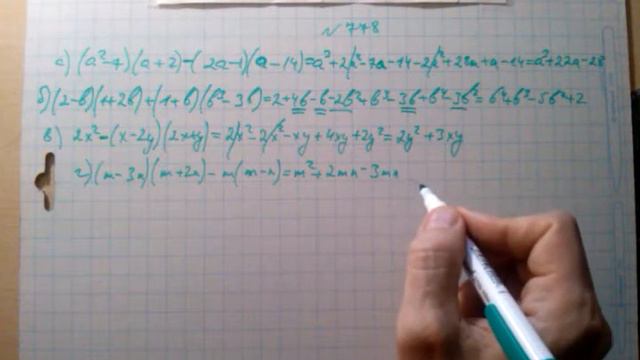 № 778
а) (a²-7)(a+2)-(2a-1)(a-14)=a³+2a²-7a-14-2a²+28a+a-14=a³+22a-28
б) (2-b)(1+2b)+(1+b)(b³-3b)=2+4b-b-2b²+b³-3b+b⁴-3b²=b⁴+b³-5b²+2
в) 2x²-(x-2y)(2x+y)=2x²-2x²-xy+4xy+2y²=2y²+3xy
г) (m-3n)(m+2n)-m(m-n)=m²+2mn-3mn